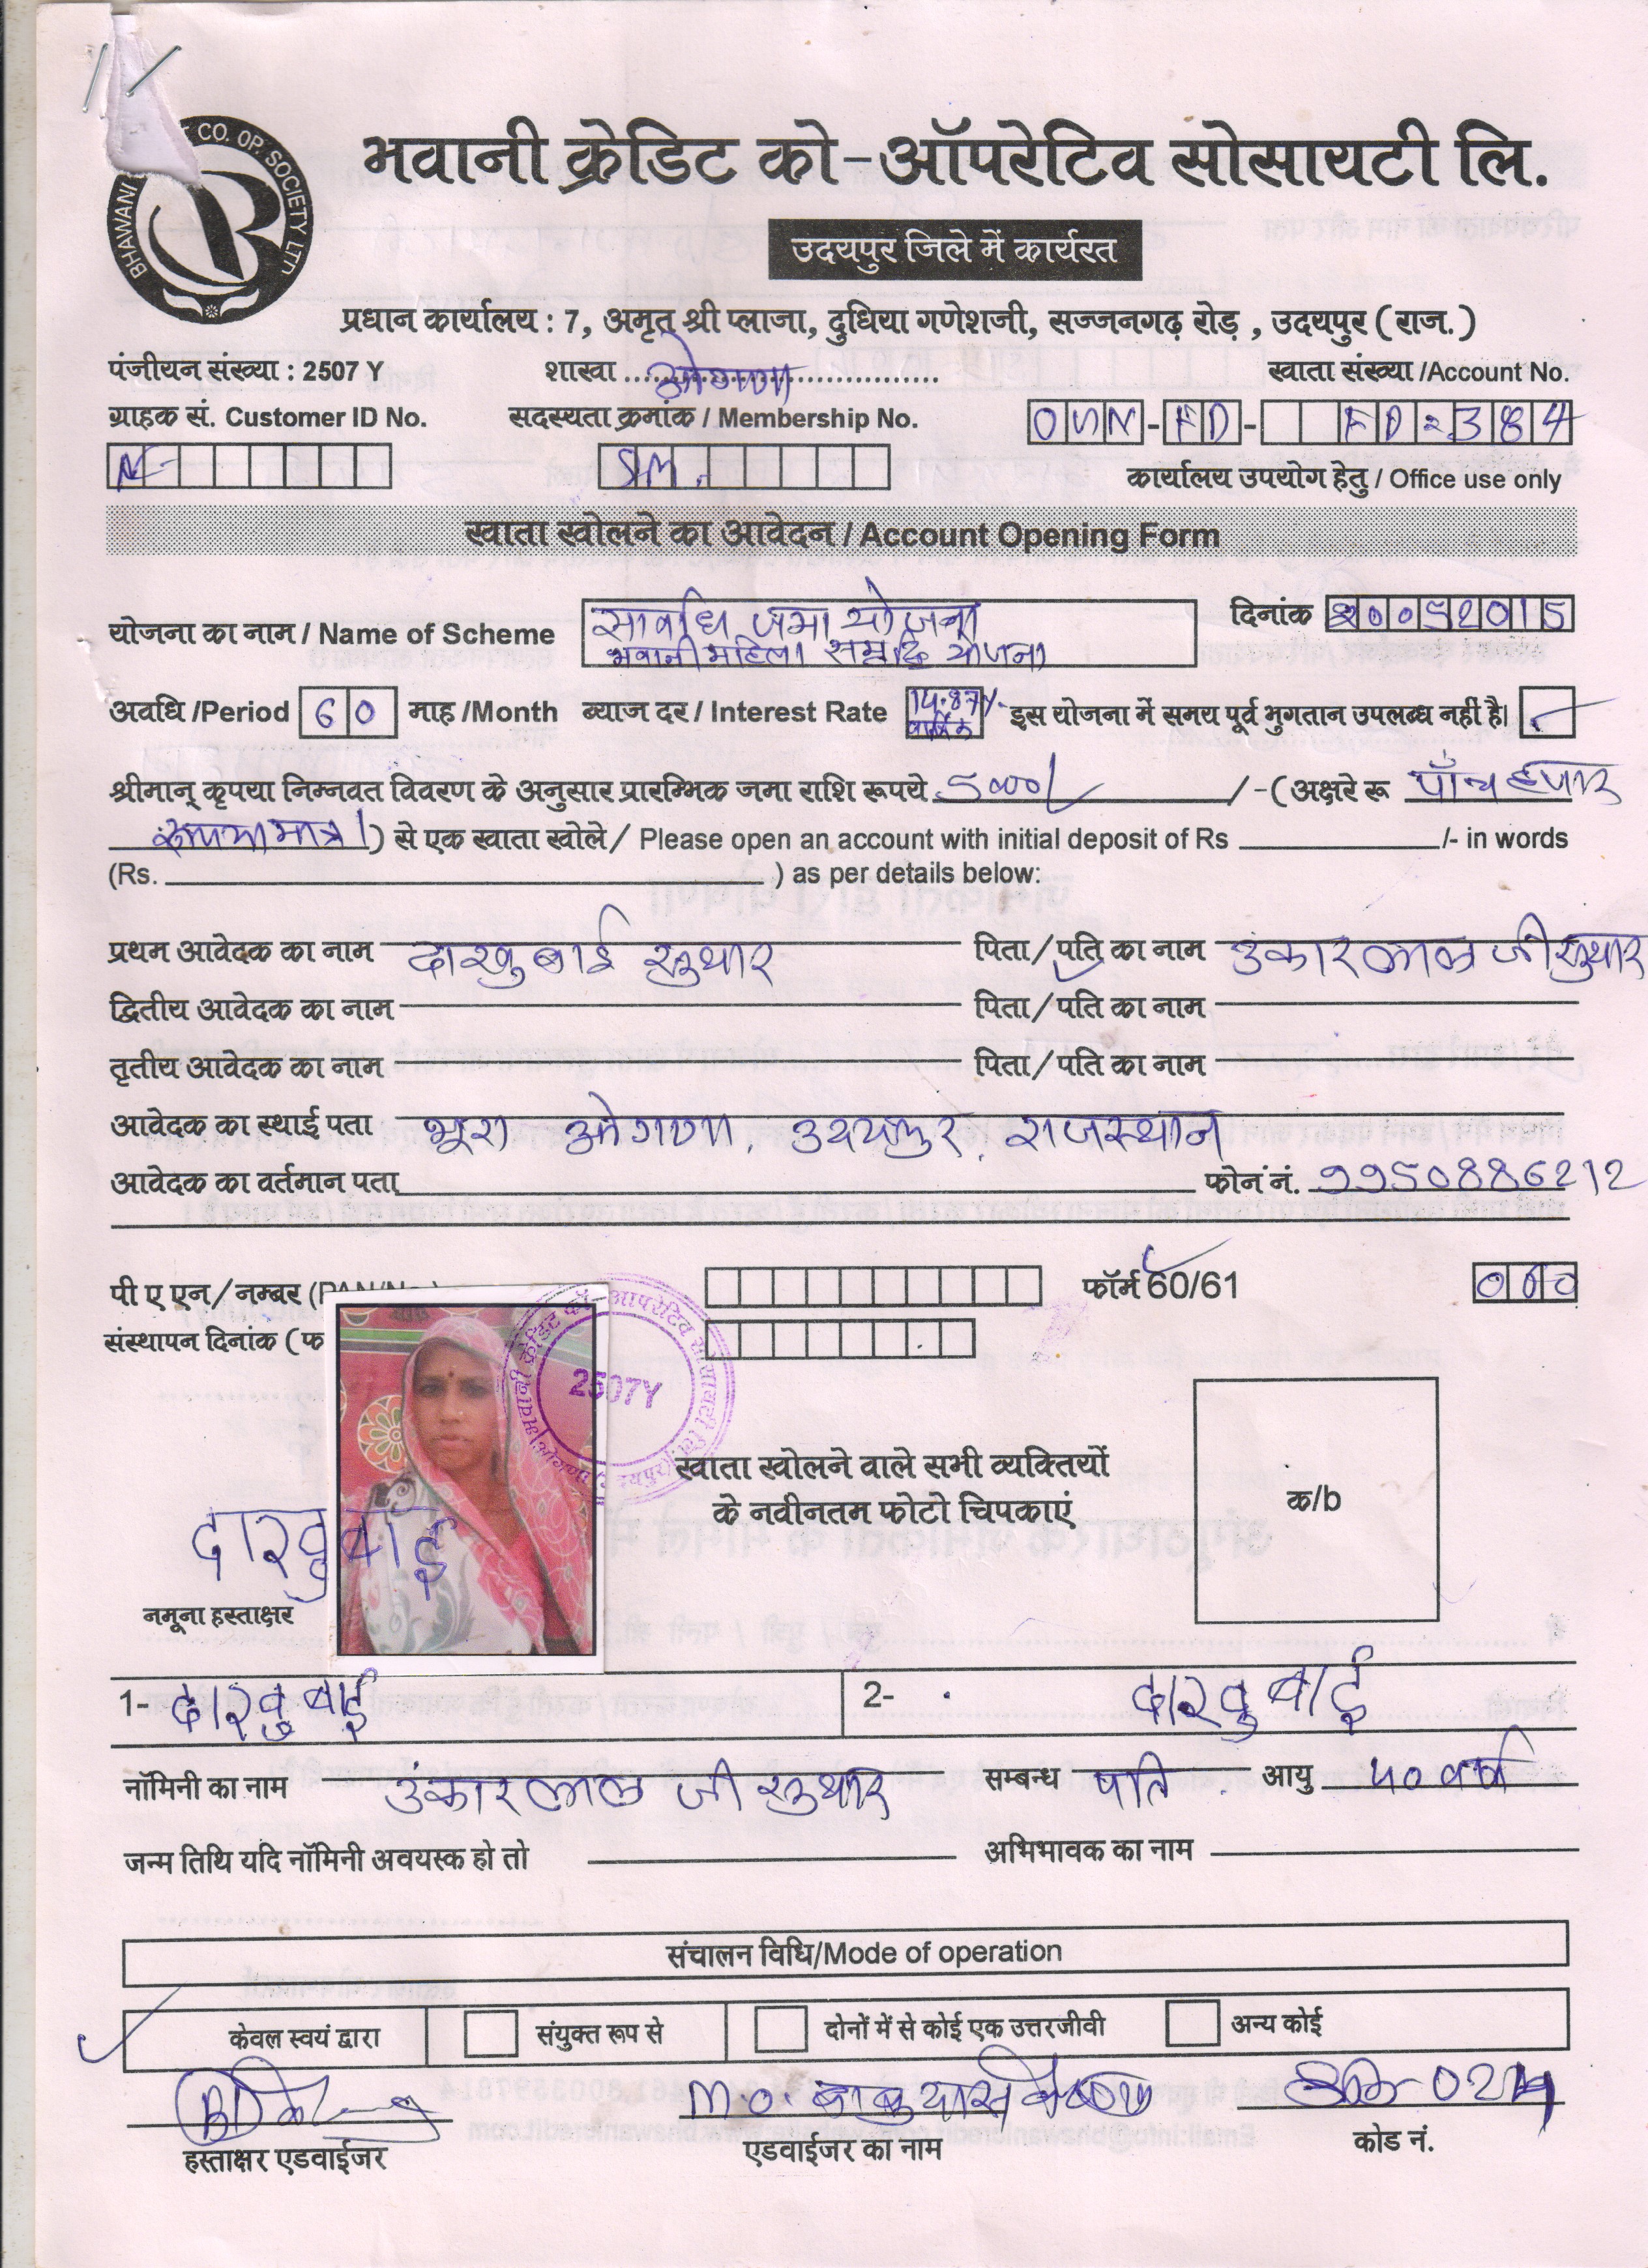 BHAWANI CO. OP. SOCIETY LTD
भवानी क्रेडिट को-ऑपरेटिव सोसायटी लि.
उदयपुर जिले में कार्यरत
प्रधान कार्यालय : 7, अमृत श्री प्लाजा, दुधिया गणेशजी, सज्जनगढ़ रोड़ , उदयपुर ( राज. )
पंजीयन संख्या : 2507 Y शाखा ओगणा खाता संख्या /Account No.
ग्राहक सं. Customer ID No. सदस्यता क्रमांक / Membership No. OUN-FD- FD 384
M- SM. कार्यालय उपयोग हेतु / Office use only
खाता खोलने का आवेदन / Account Opening Form
योजना का नाम / Name of Scheme सावधि जमा योजना दिनांक
भवानी महिला समृद्धि योजना
अवधि /Period 60 माह /Month ब्याज दर / Interest Rate 14.87% वार्षिक इस योजना में समय पूर्व भुगतान उपलब्ध नहीं है।
श्रीमान् कृपया निम्नवत विवरण के अनुसार प्रारम्भिक जमा राशि रूपये 5000/ /- ( अक्षरे रू पाँच हजार
रूपया मात्र।) से एक खाता खोले / Please open an account with initial deposit of Rs /- in words
(Rs. ) as per details below:
प्रथम आवेदक का नाम दाखुबाई सुथार पिता / पति का नाम उंकारलाल जी सुथार
द्वितीय आवेदक का नाम पिता / पति का नाम
तृतीय आवेदक का नाम पिता / पति का नाम
आवेदक का स्थाई पता भूरा ओगणा, उदयपुर, राजस्थान
आवेदक का वर्तमान पता फोन नं. 9950886212
पी ए एन / नम्बर ( फॉर्म 60/61
संस्थापन दिनांक ( फ
2507Y
खाता खोलने वाले सभी व्यक्तियों
के नवीनतम फोटो चिपकाएं
क/b
दाखुबाई
नमूना हस्ताक्षर
1- दाखुबाई 2- दाखुबाई
नॉमिनी का नाम उंकारलाल जी सुथार सम्बन्ध पति आयु ५० वर्ष
जन्म तिथि यदि नॉमिनी अवयस्क हो तो अभिभावक का नाम
संचालन विधि/Mode of operation
केवल स्वयं द्वारा संयुक्त रूप से दोनों में से कोई एक उत्तरजीवी अन्य कोई
M.O.
हस्ताक्षर एडवाईजर एडवाईजर का नाम कोड नं.